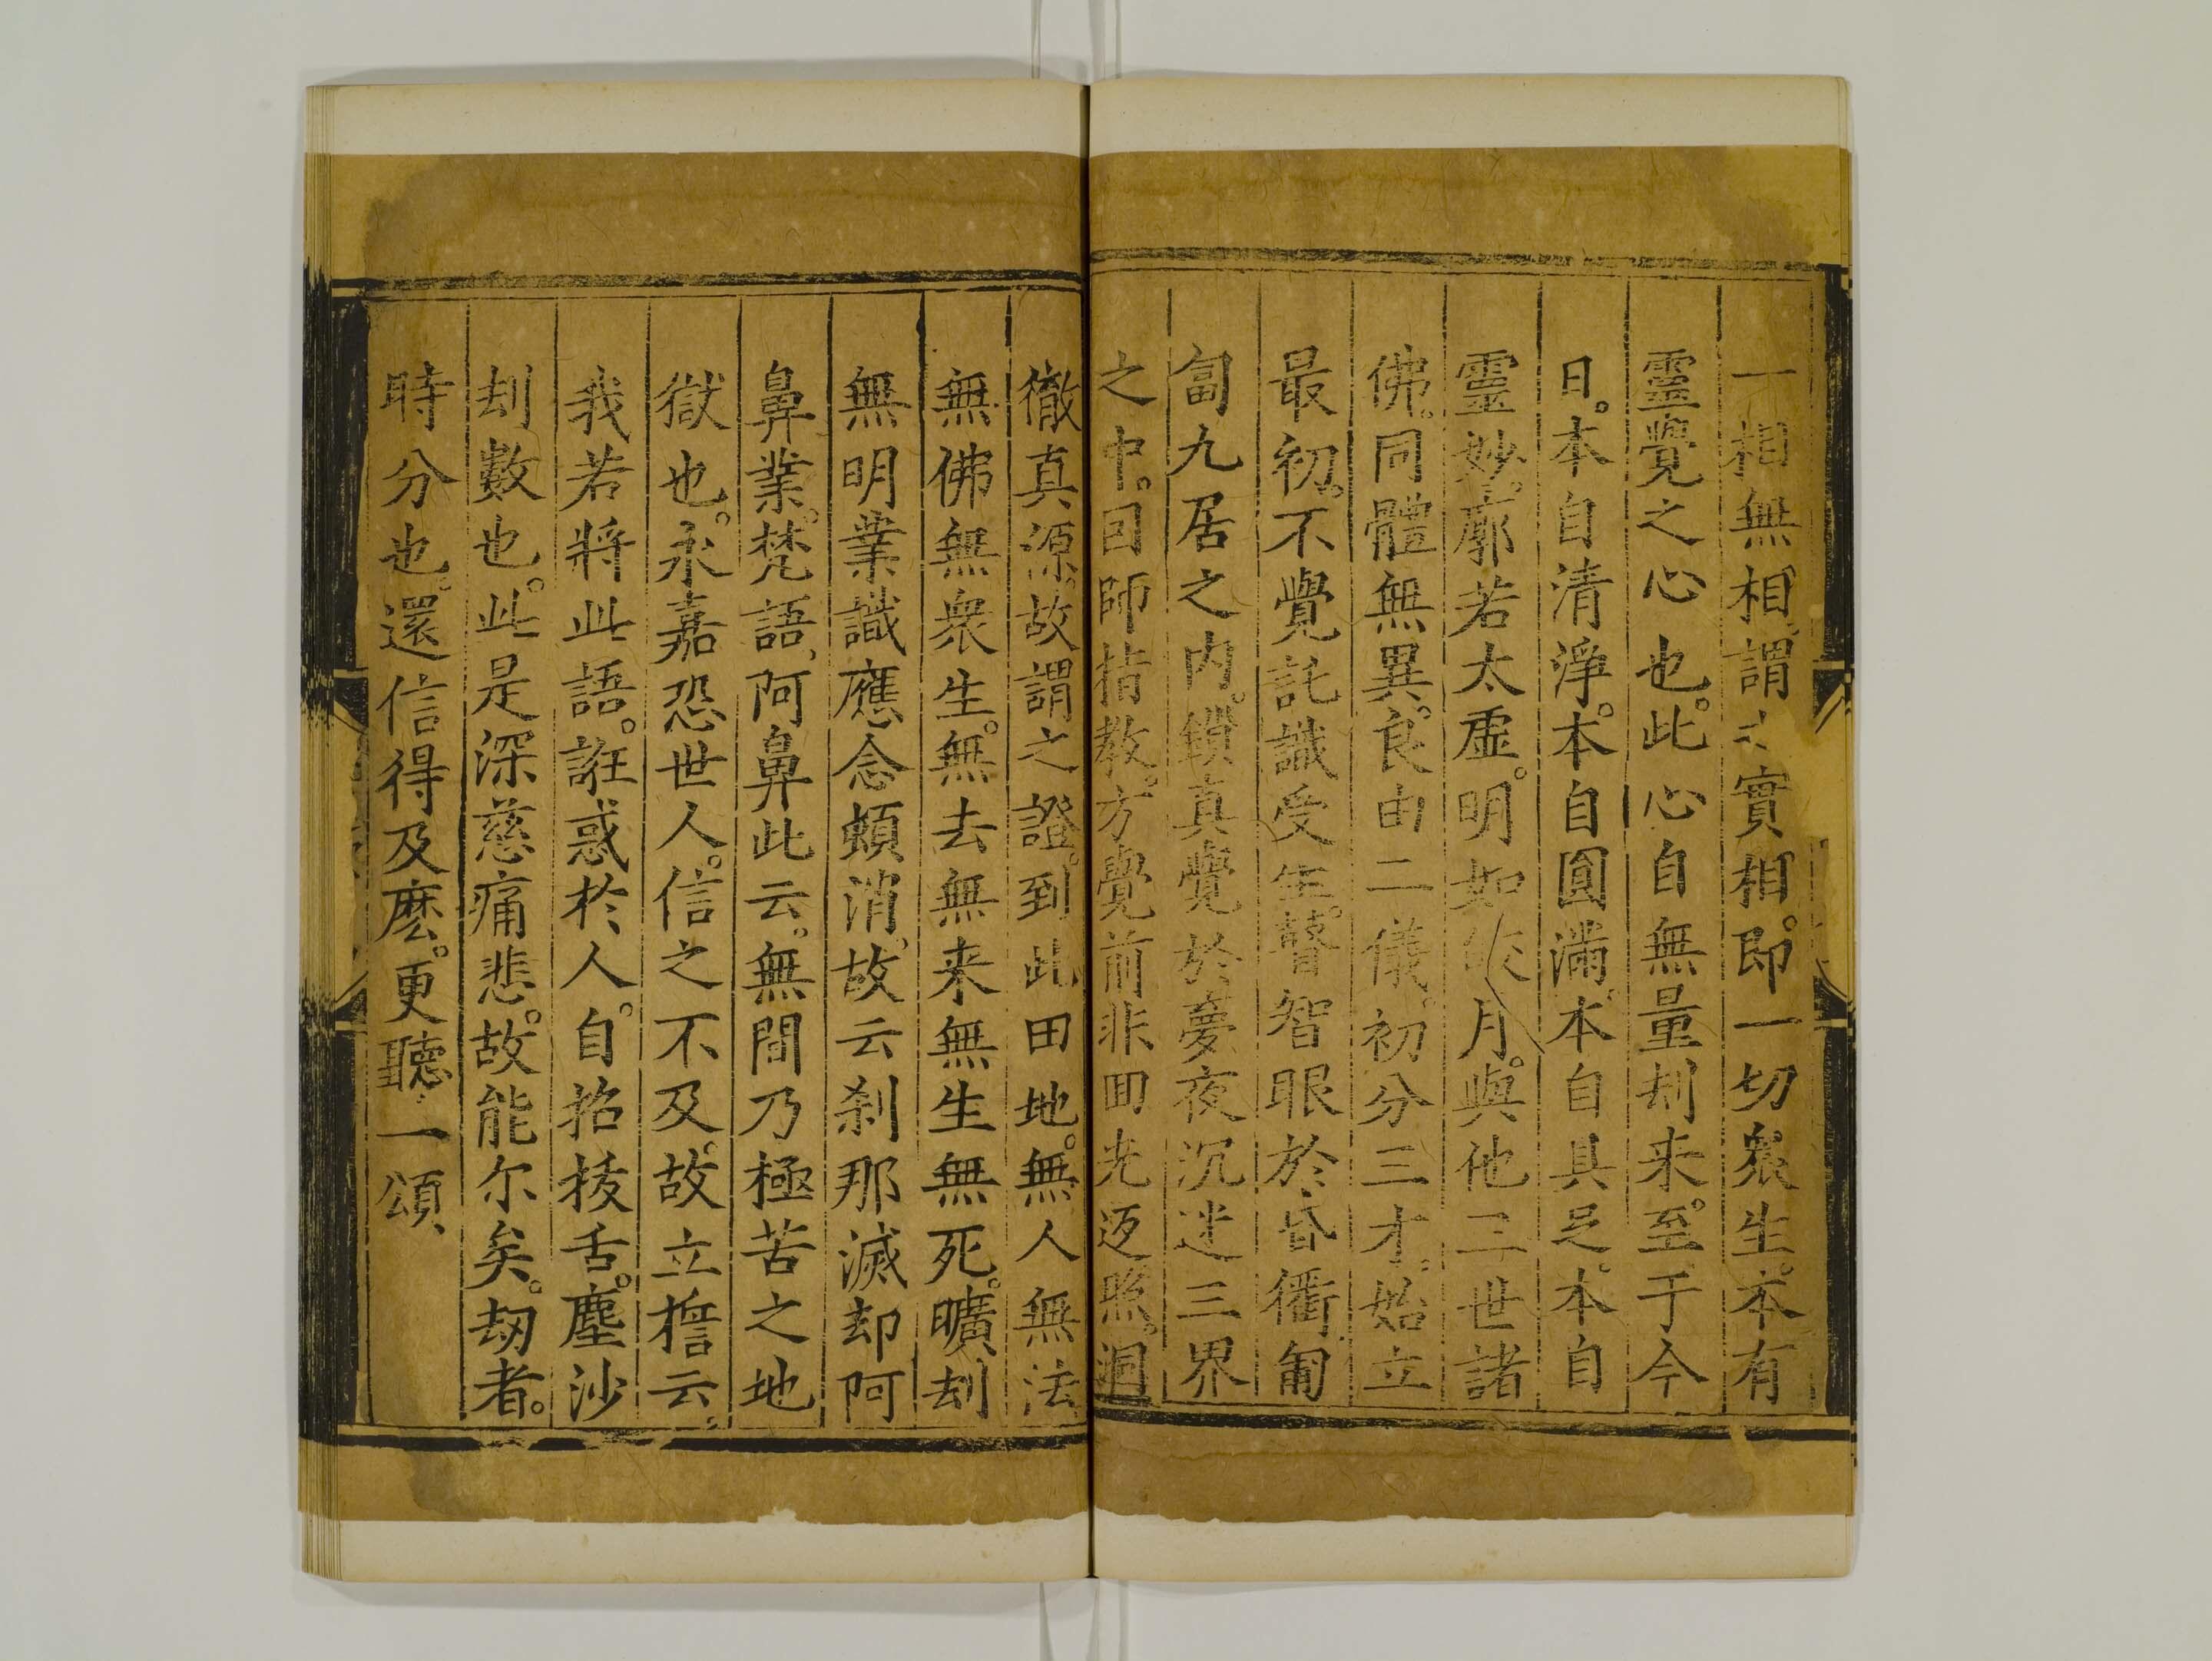 一相無相、謂之實相。即一切衆生。本有
靈覺之心也。此心自無量刧来。至于今
日。本自清淨。本自圓滿。本自具足。本自
靈妙。廓若太虛。明如皎月。與他三世諸
佛。同體無異。良由二儀。初分三才。始立
最初。不覺託識受生。瞽智眼於昏衢匍
匐九居之内。鎖真覺於夢夜沉迷三界
之中。因師指教。方覺前非囬光返照。洞
徹真源。故謂之證。到此田地。無人無法
無佛無衆生。無去無来無生無死。曠刧
無明業識應念頓消。故云刹那滅却阿
鼻業。梵語、阿鼻此云。無間乃極苦之地
獄也。永嘉恐世人。信之不及。故立擔云、
我若將此語。誑惑於人。自招拔舌。塵沙
刧數也。此是深慈痛悲。故能尔矣。刼者。
時分也。還信得及麽。更聽一頌、